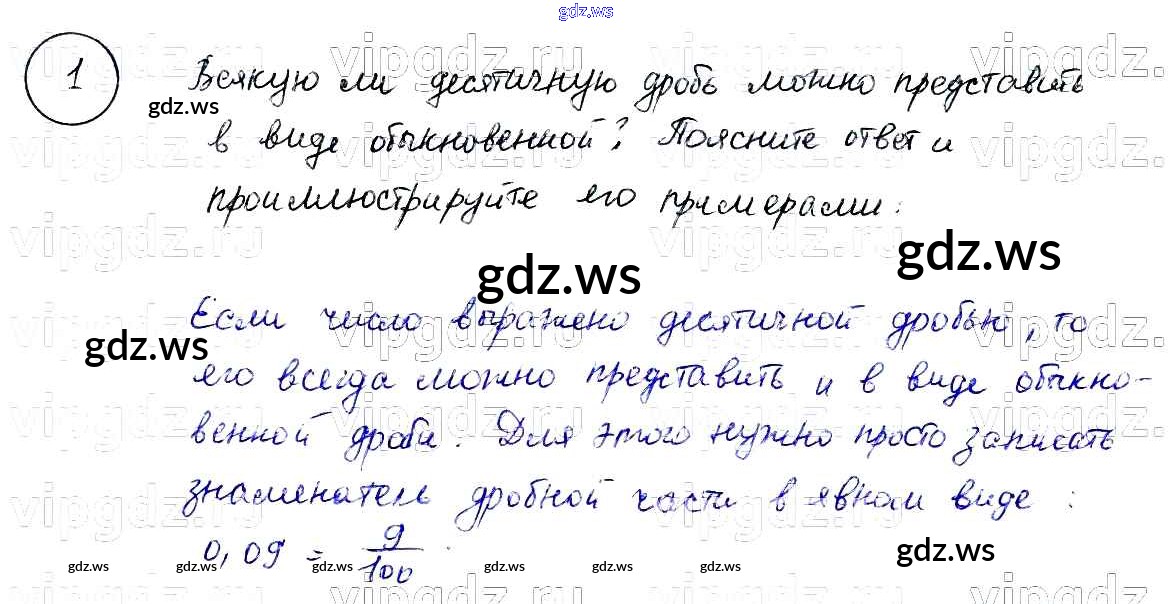 gdz.ws
1 Всякую ли десятичную дробь можно представить
в виде обыкновенной? Поясните ответ и
проиллюстрируйте его примерами.
Если число выражено десятичной дробью, то
его всегда можно представить и в виде обыкно-
венной дроби. Для этого нужно просто записать
знаменатель дробной части в явном виде:
0,09 = 9/100.